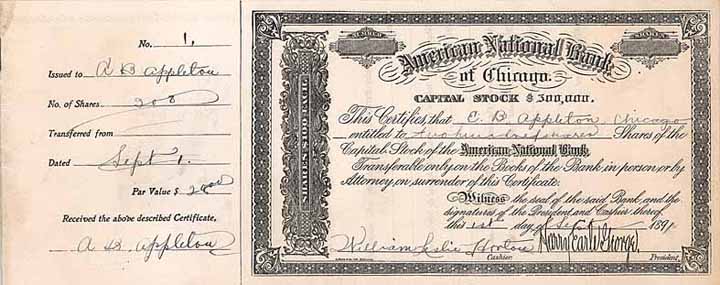 No. 1,
Issued to A B Appleton
No. of Shares 200
Transferred from
Dated Sept 1.
Par Value $
Received the above described Certificate,
A B. Appleton
NUMBER
SHARES
American National Bank
of Chicago.
CAPITAL STOCK $300,000.
This Certifies that E. B. Appleton, Chicago
entitled to Two hundred shares Shares of the
Capital Stock of the American National Bank
Transferable only on the Books of the Bank in person or by
Attorney on surrender of this Certificate.
Witness the seal of the said Bank, and the
signatures of the President and Cashier thereof
this 1st day of Sept 1891
William Leslie Horton Harry Earle George.
Cashier. President.
SHARES $100 EACH